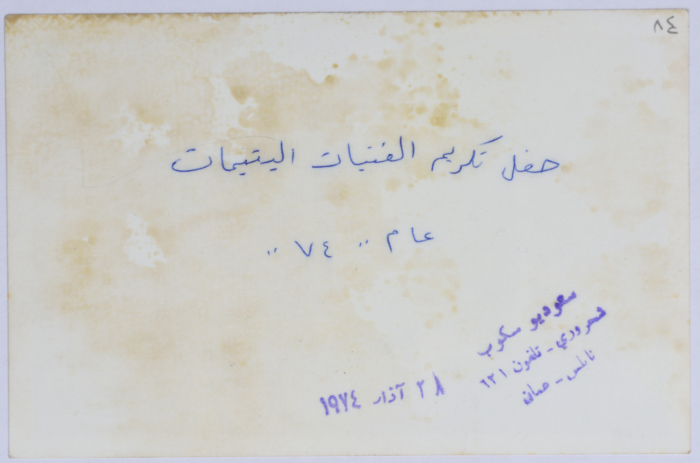 ٨٤
حفل تكريم الفتيات اليتيمات
عام ,, ٧٤ ,,
سعوديو سكوب
شحروري - تلفون ٦٣١
نابلس - عمان
٢٨ آذار ١٩٧٤